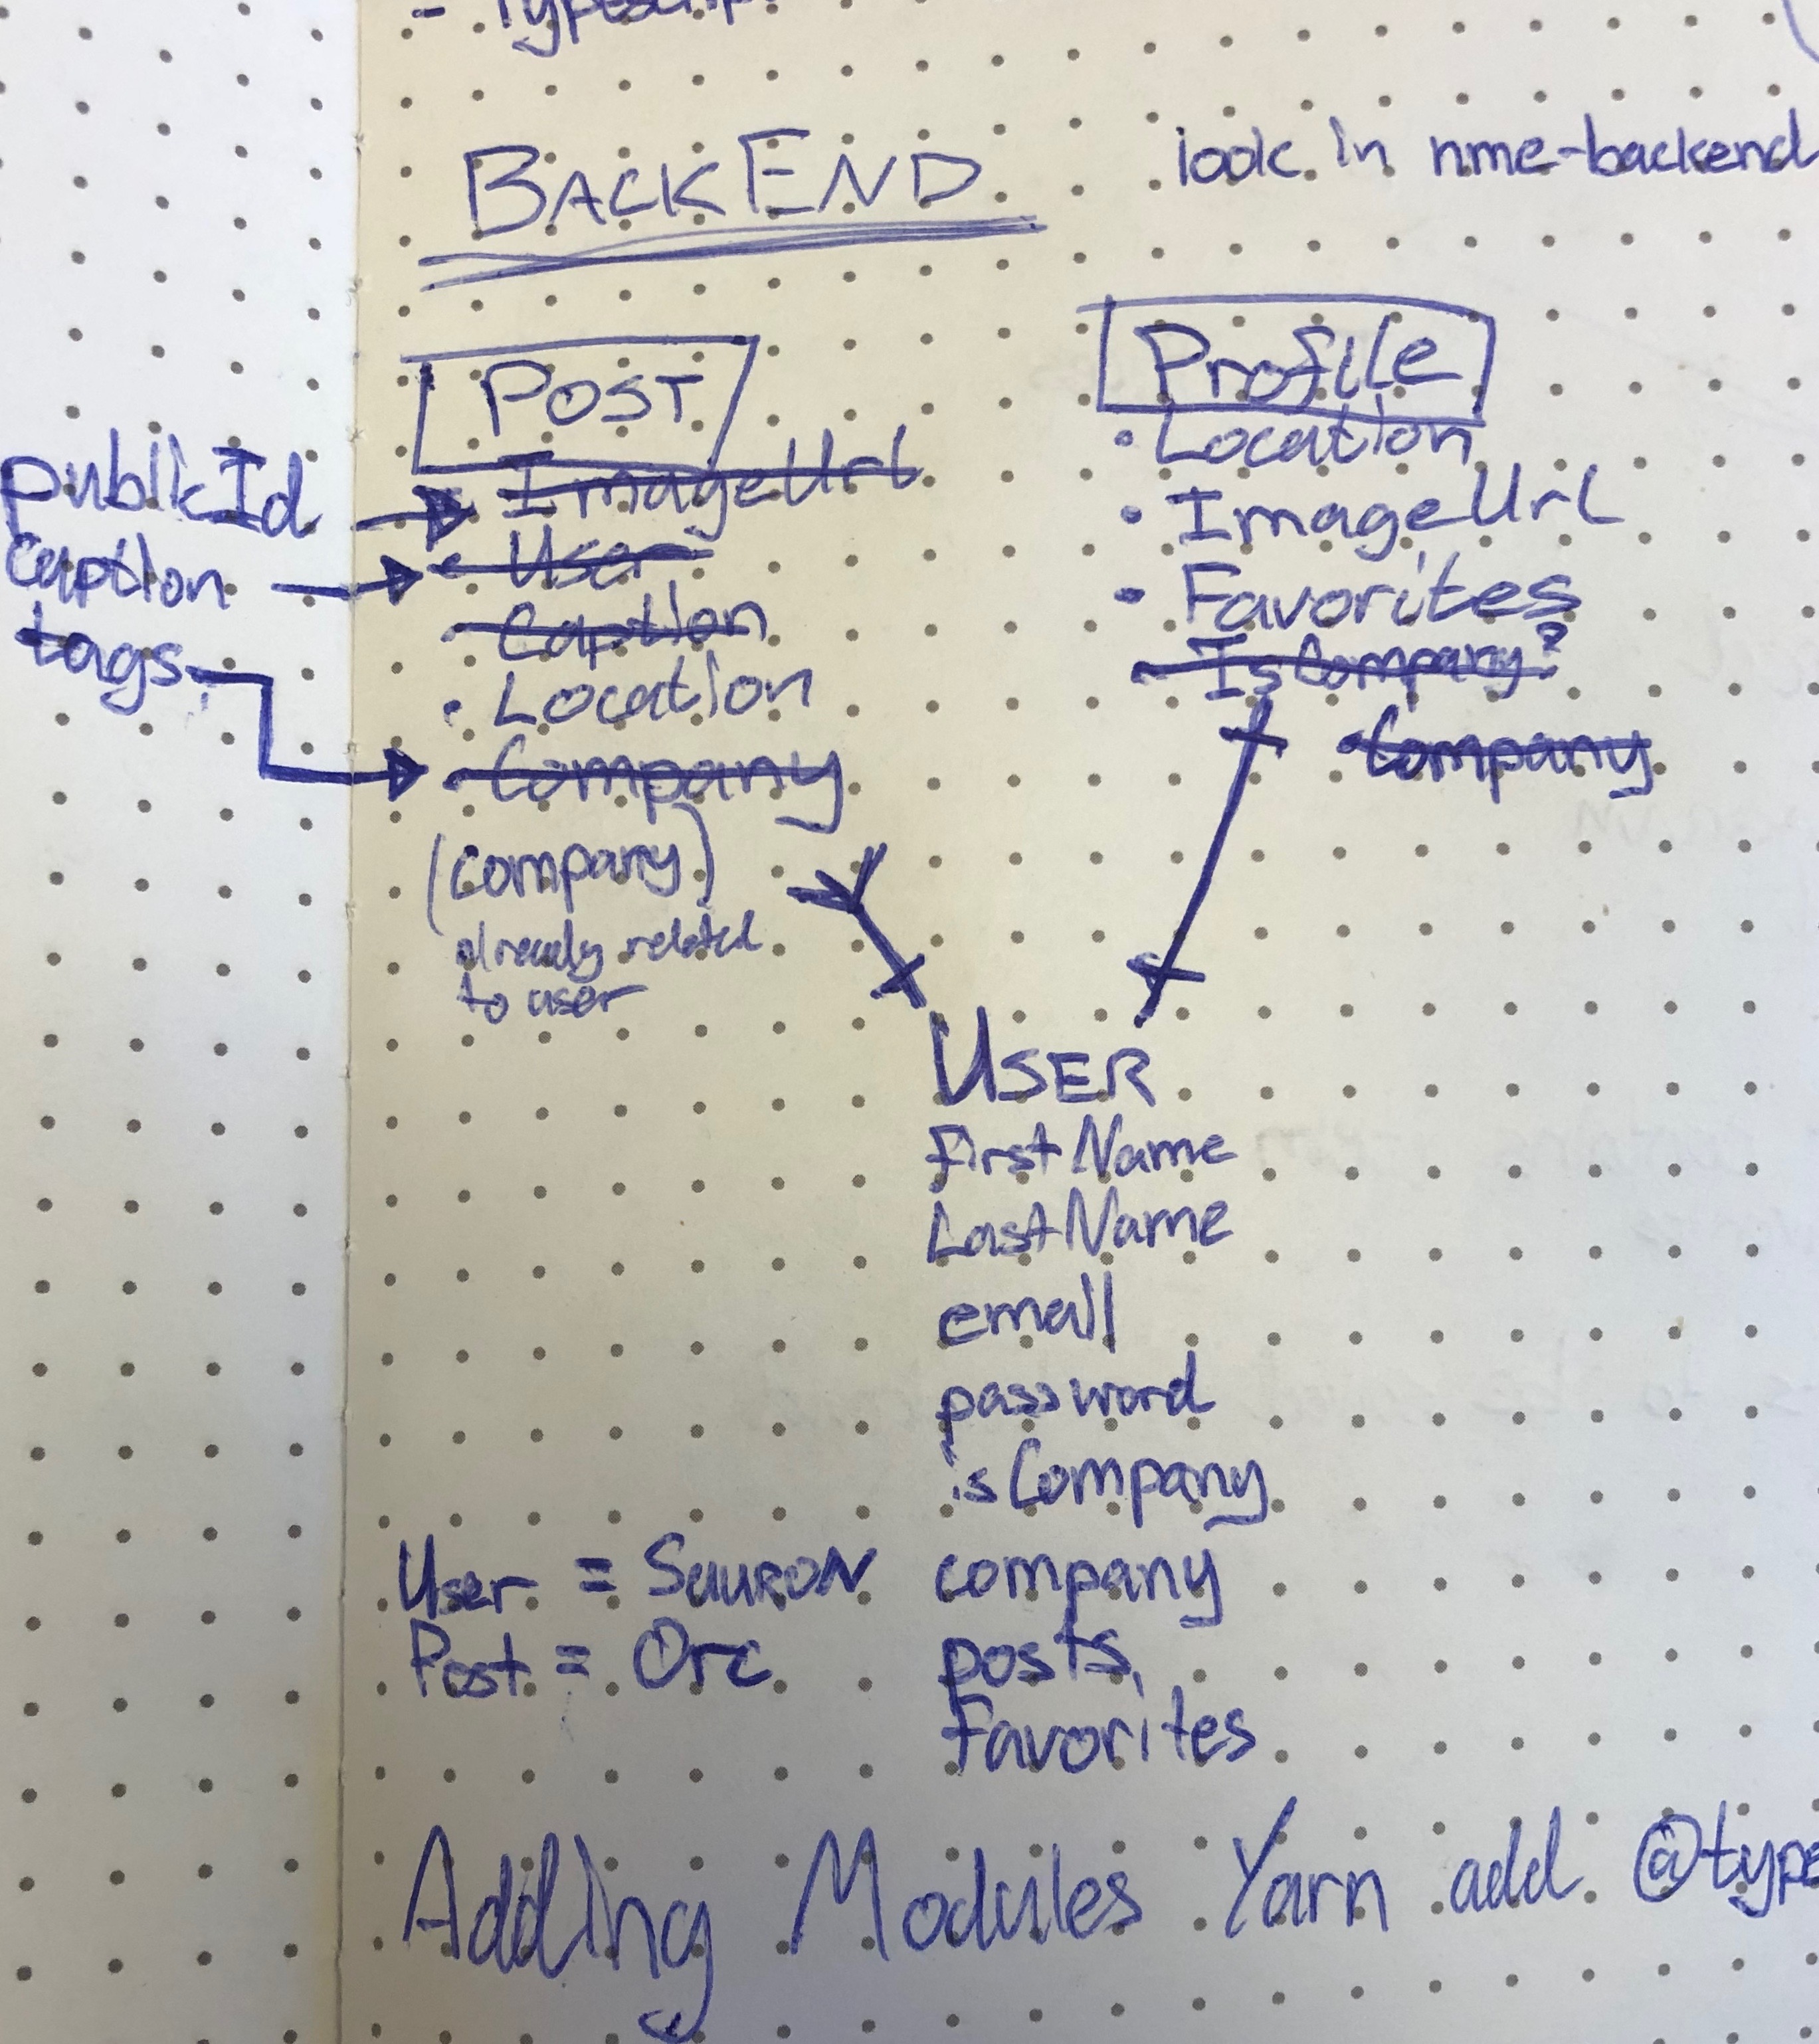 - Typescrip
BACKEND
look in nme-backend
POST
ImageUrl
User
Caption
Location
Company
(company)
already related
to user
publicId
caption
tags
Profile
• Location
• ImageUrl
• Favorites
IsCompany?
• Company
USER
FirstName
LastName
email
password
isCompany
company
posts
Favorites
User = SAURON
Post = Orc
Adding Modules Yarn add @type